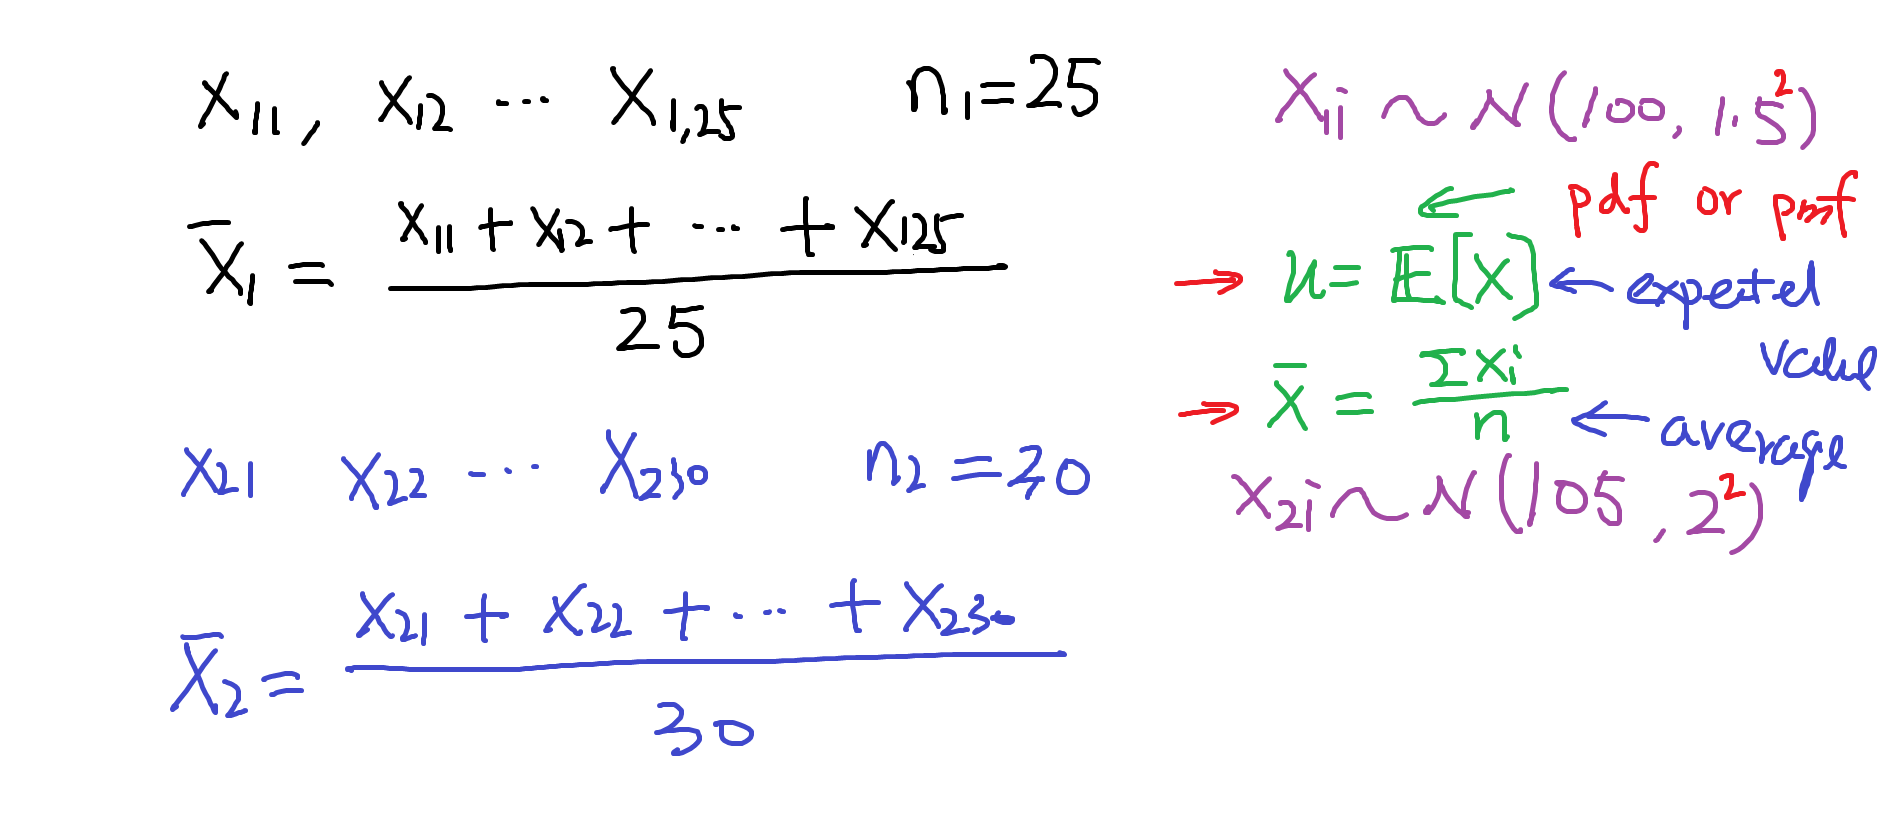 X₁₁, X₁₂ ... X₁,₂₅ n₁=25
X̄₁ = (X₁₁ + X₁₂ + ... + X₁₂₅) / 25
X₂₁ X₂₂ ... X₂₃₀ n₂=30
X̄₂ = (X₂₁ + X₂₂ + ... + X₂₃₀) / 30
X₁ᵢ ~ N(100, 1.5²)
← pdf or pmf
→ μ = E[X] ← expeted
value
→ X̄ = ΣXᵢ / n ← average
X₂ᵢ ~ N(105, 2²)